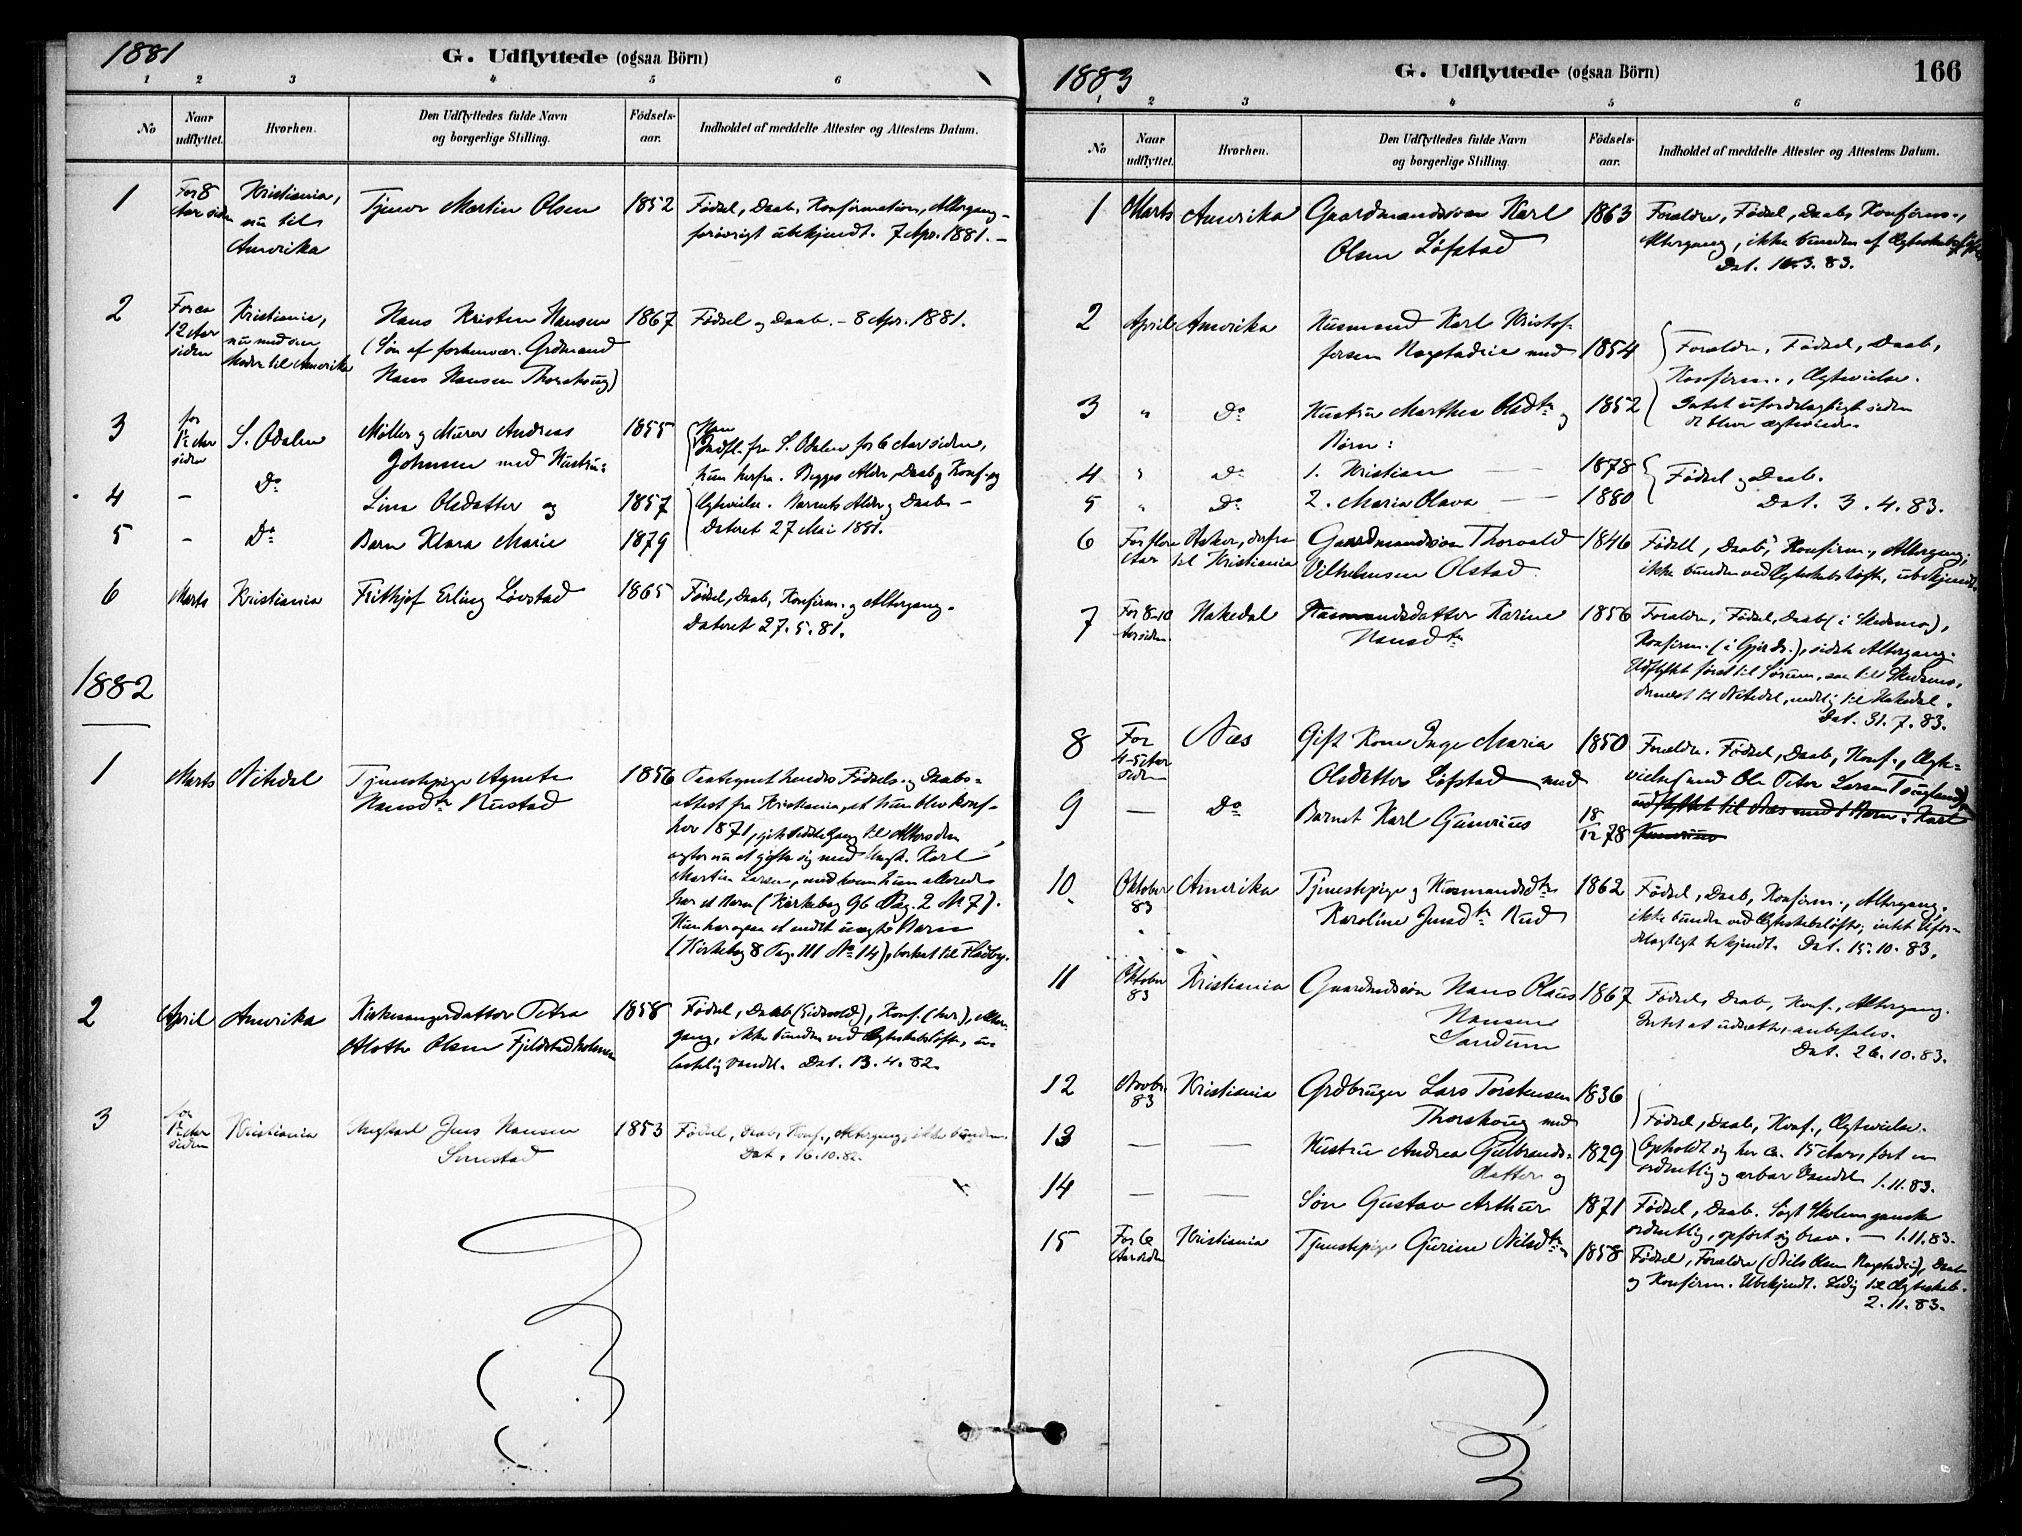 1881
G. Udflyttede (ogsaa Börn)
1 2 3 4 5 6
No
Naar udflyttet.
Hvorhen.
Den Udflyttedes fulde Navn og borgerlige Stilling.
Födsels-aar.
Indholdet af meddelte Attester og Attestens Datum.
1 For 8 Kristiania, Tjener Martin Olsen 1852 Fødsel, Daab, Konfirmation, Altergang -
Aar siden nu til forøvrigt ubekjendt. 7 Apr. 1881. -
Amerika
2 For ca Kristiania, Hans Kristen Hansen 1867 Fødsel og Daab. - 8 Apr. 1881.
12 Aar nu med sin (Søn af forhenvær. Grdmand
siden Moder til Amerika Hans Hansen Thorshoug)
3 for S. Odalen Møller og Murer Andreas 1855 Han
1½ Aar Johnsen med Hustru: Indfl. fra S. Odalen for 6 Aar siden,
siden Do hun herfra. Begges Alder, Daab, Konf. og
4 - Lina Olsdatter og 1857 Ægtevielse. Barnets Alder og Daab -
5 - Do Barn Klara Marie 1879 Dateret 27 Mai 1881.
6 Marts Kristiania Frithjof Erling Løvstad 1865 Fødsel, Daab, Konfirm. og Altergang.
Dateret 27. 5. 81.
1882
1 Marts Nitedal Tjenestepige Agnete 1856 Paategnet hendes Fødsels- og Daabs-
Hansdtr Rustad attest fra Kristiania, at hun blev konf.
her 1871, gik sidste Gang til Alters den
agter nu at gifte sig med Ungk. Karl
Martin Larsen, med hvem hun allerede
har et Barn (Kirkebog 9b Pag. 2 No 7).
Hun har ogsaa et andet uægte Barn
(Kirkebog 8 Pag. 111 No 14), bortsat til Fladby.
2 April Amerika Kirkesangerdatter Petra 1858 Fødsel, Daab (Eidsvold), Konf. (her), Alter-
Olsen Fjeldstadholmen gang, ikke bunden ved Ægteskabsløfte, u-
lastelig Vandel. Dat. 13. 4. 82.
3 for Kristiania Ungkarl Jens Hansen 1853 Fødsel, Daab, Konf., Altergang, ikke bunden.
1½ Aar Dat. 16. 10. 82.
siden
1883
G. Udflyttede (ogsaa Börn)
166
1 2 3 4 5 6
No
Naar udflyttet.
Hvorhen.
Den Udflyttedes fulde Navn og borgerlige Stilling.
Födsels-aar.
Indholdet af meddelte Attester og Attestens Datum.
1 Marts Amerika Gaardmandssøn Karl 1863 Forældre, Fødsel, Daab, Konfirm.,
Olsen Løfstad Altergang, ikke bunden af Ægteskabsløfte
Dat. 16.3. 83.
2 April Amerika Husmand Karl Kristof-
fersen Nagstadeie med 1854 Forældre, Fødsel, Daab,
Konfirm., Ægtevielse.
3 " Do Hustru Marthea Olsdtr og 1852 Intet ufordelagtigt siden
Børn: de blev ægteviede.
4 " Do 1. Kristian 1878 Fødsel og Daab.
5 " Do 2. Maria Olava 1880 Dat. 3. 4. 83.
6 For flere Asker, derfra Gaardmandssøn Thorvald 1846 Fødsel, Daab, Konfirm., Altergang,
Aar til Kristiania Vilhelmsen Olstad. ikke bunden ved Ægteskabsløfte, ubekjendt.
7 For 8-10 Hakedal Husmandsdatter Karine 1856 Forældre, Fødsel, Daab (i Skedsmo),
Aar siden Hansdtr Konfirm. (i Gjerdr.), sidste Altergang.
Udflyttet først til Sørum, saa til Skedsmo,
dernæst til Nitedal, nedlig til Hakedal.
Dat. 31. 7. 83.
8 For Næs Gift Kone Inge Maria 1850 Forældre. Fødsel, Daab, Konf., Ægte-
4-5 Aar Olsdatter Løfstad med vielse (med Ole Peter Larsen
siden udflyttet til Næs med 1 Barn: Karl
9 - Do Barnet Karl Gunerius 18/12 78 Gunerius
10 Oktober Amerika Tjenestepige og Husmandsdtr 1862 Fødsel, Daab, Konfirm., Altergang,
83 Karoline Jensdtr Rud ikke bunden ved Ægteskabsløfte, intet Ufor-
delagtigt bekjendt. Dat. 15. 10. 83.
11 Oktober Kristiania Gaardmdssøn Hans Olaus 1867 Fødsel, Daab, Konf., Altergang.
83 Hansen Intet at udsætte, anbefales.
Sandum Dat. 26. 10. 83.
12 Novbr. Kristiania Grdbruger Lars Torstensen 1836
83 Thorshoug med Fødsel, Daab, Konf., Ægtevielse.
13 - - Hustru Andrea Gulbrands- 1829 Opholdt sig her ca. 15 Aar, ført en
datter og ordentlig og ærbar Vandel 1. 11. 83.
14 - - Søn Gustav Arthur 1871 Fødsel, Daab. Søgt Skolen ganske
ordentlig, opført sig brav. - 1. 11. 83.
15 For 6 Kristiania Tjenestepige Gurine Nilsdtr 1858 Fødsel, Forældre (Nils Olsen Nagstadeie), Daab
Aar siden og Konfirm. Ubekjendt. Ledig til Ægteskab.
2. 11. 83.